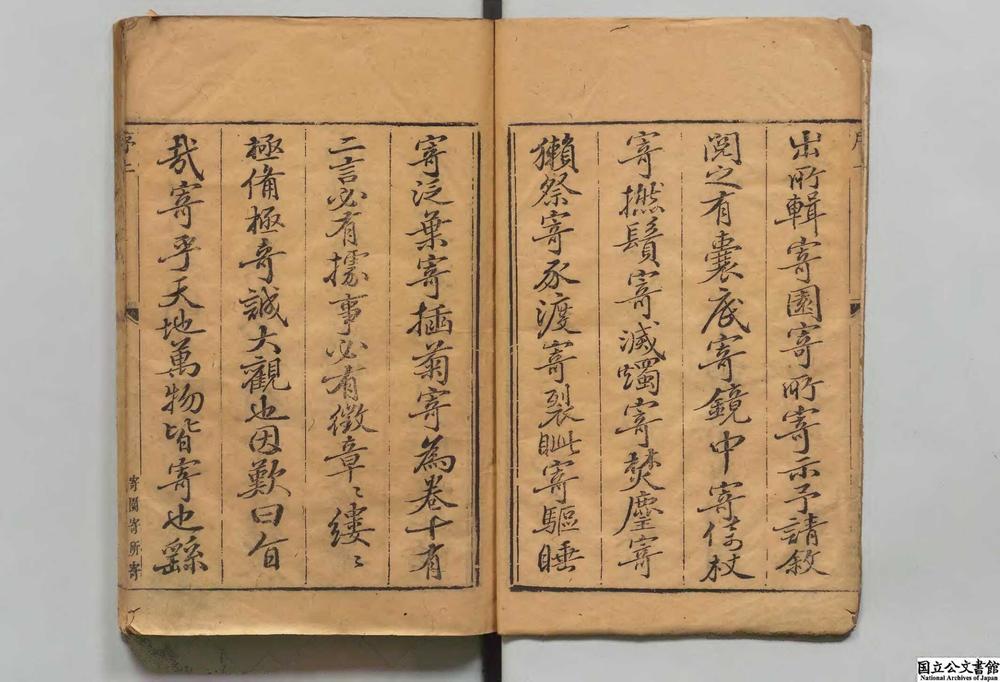 出所輯寄園寄所寄示予請敘
閱之有囊底寄鏡中寄倚杖
寄撚鬚寄滅燭寄焚麈寄
獺祭寄豕渡寄裂眦寄驅睡
寄泛葉寄插菊寄為卷十有
二言必有據事必有徵章〻縷〻
極備極奇誠大觀也因歎曰旨
哉寄乎天地萬物皆寄也繇
寄園寄所寄
国立公文書館
National Archives of Japan